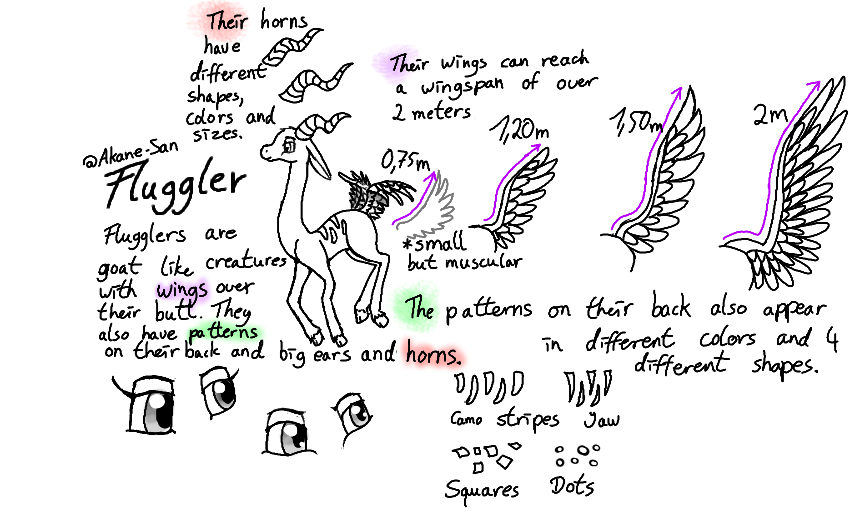 Their horns
have
different
shapes,
colors and
sizes.
Their wings can reach
a wingspan of over
2 meters
@Akane-San
Fluggler
Flugglers are
goat like creatures
with wings over
their butt. They
also have patterns
on their back and big ears and horns.
0,75m
1,20m
1,50m
2m
*small
but muscular
The patterns on their back also appear
in different colors and 4
different shapes.
Camo stripes
Jaw
Squares
Dots